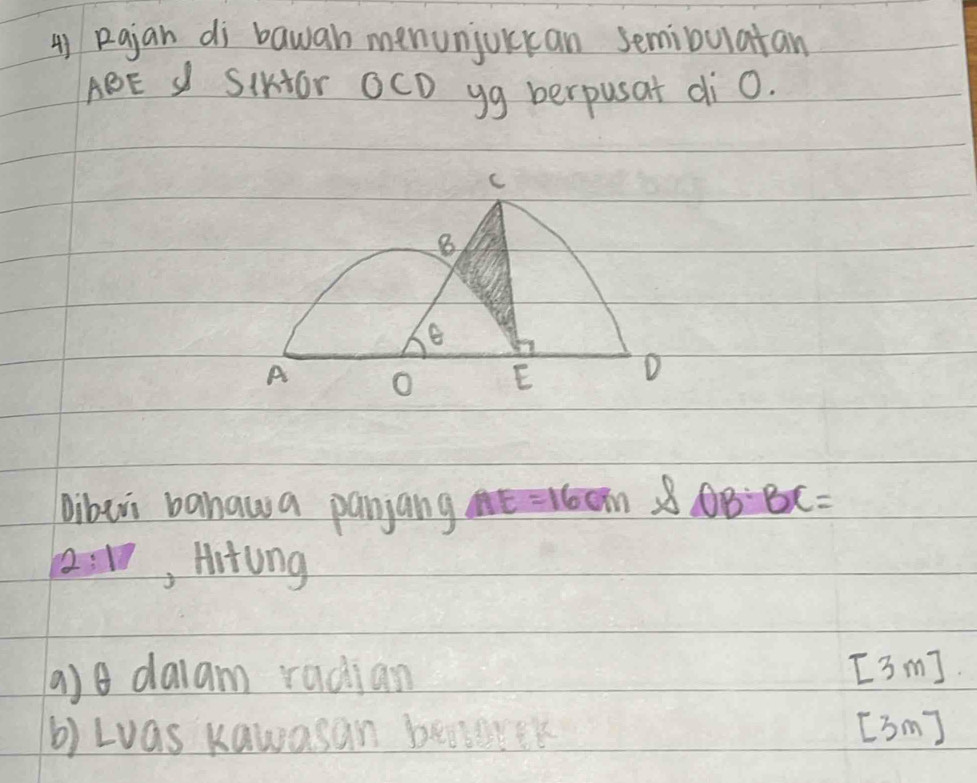 4) Rajah di bawah menunjukkan semibulatan
ABE & Sektor OCD yg berpusat di O.
C
B
θ
A
O
E
D
Diberi bahawa panjang AE = 16cm & OB:BC=
2:1, Hitung
a) θ dalam radian [3m].
b) Luas kawasan berlorek [3m]